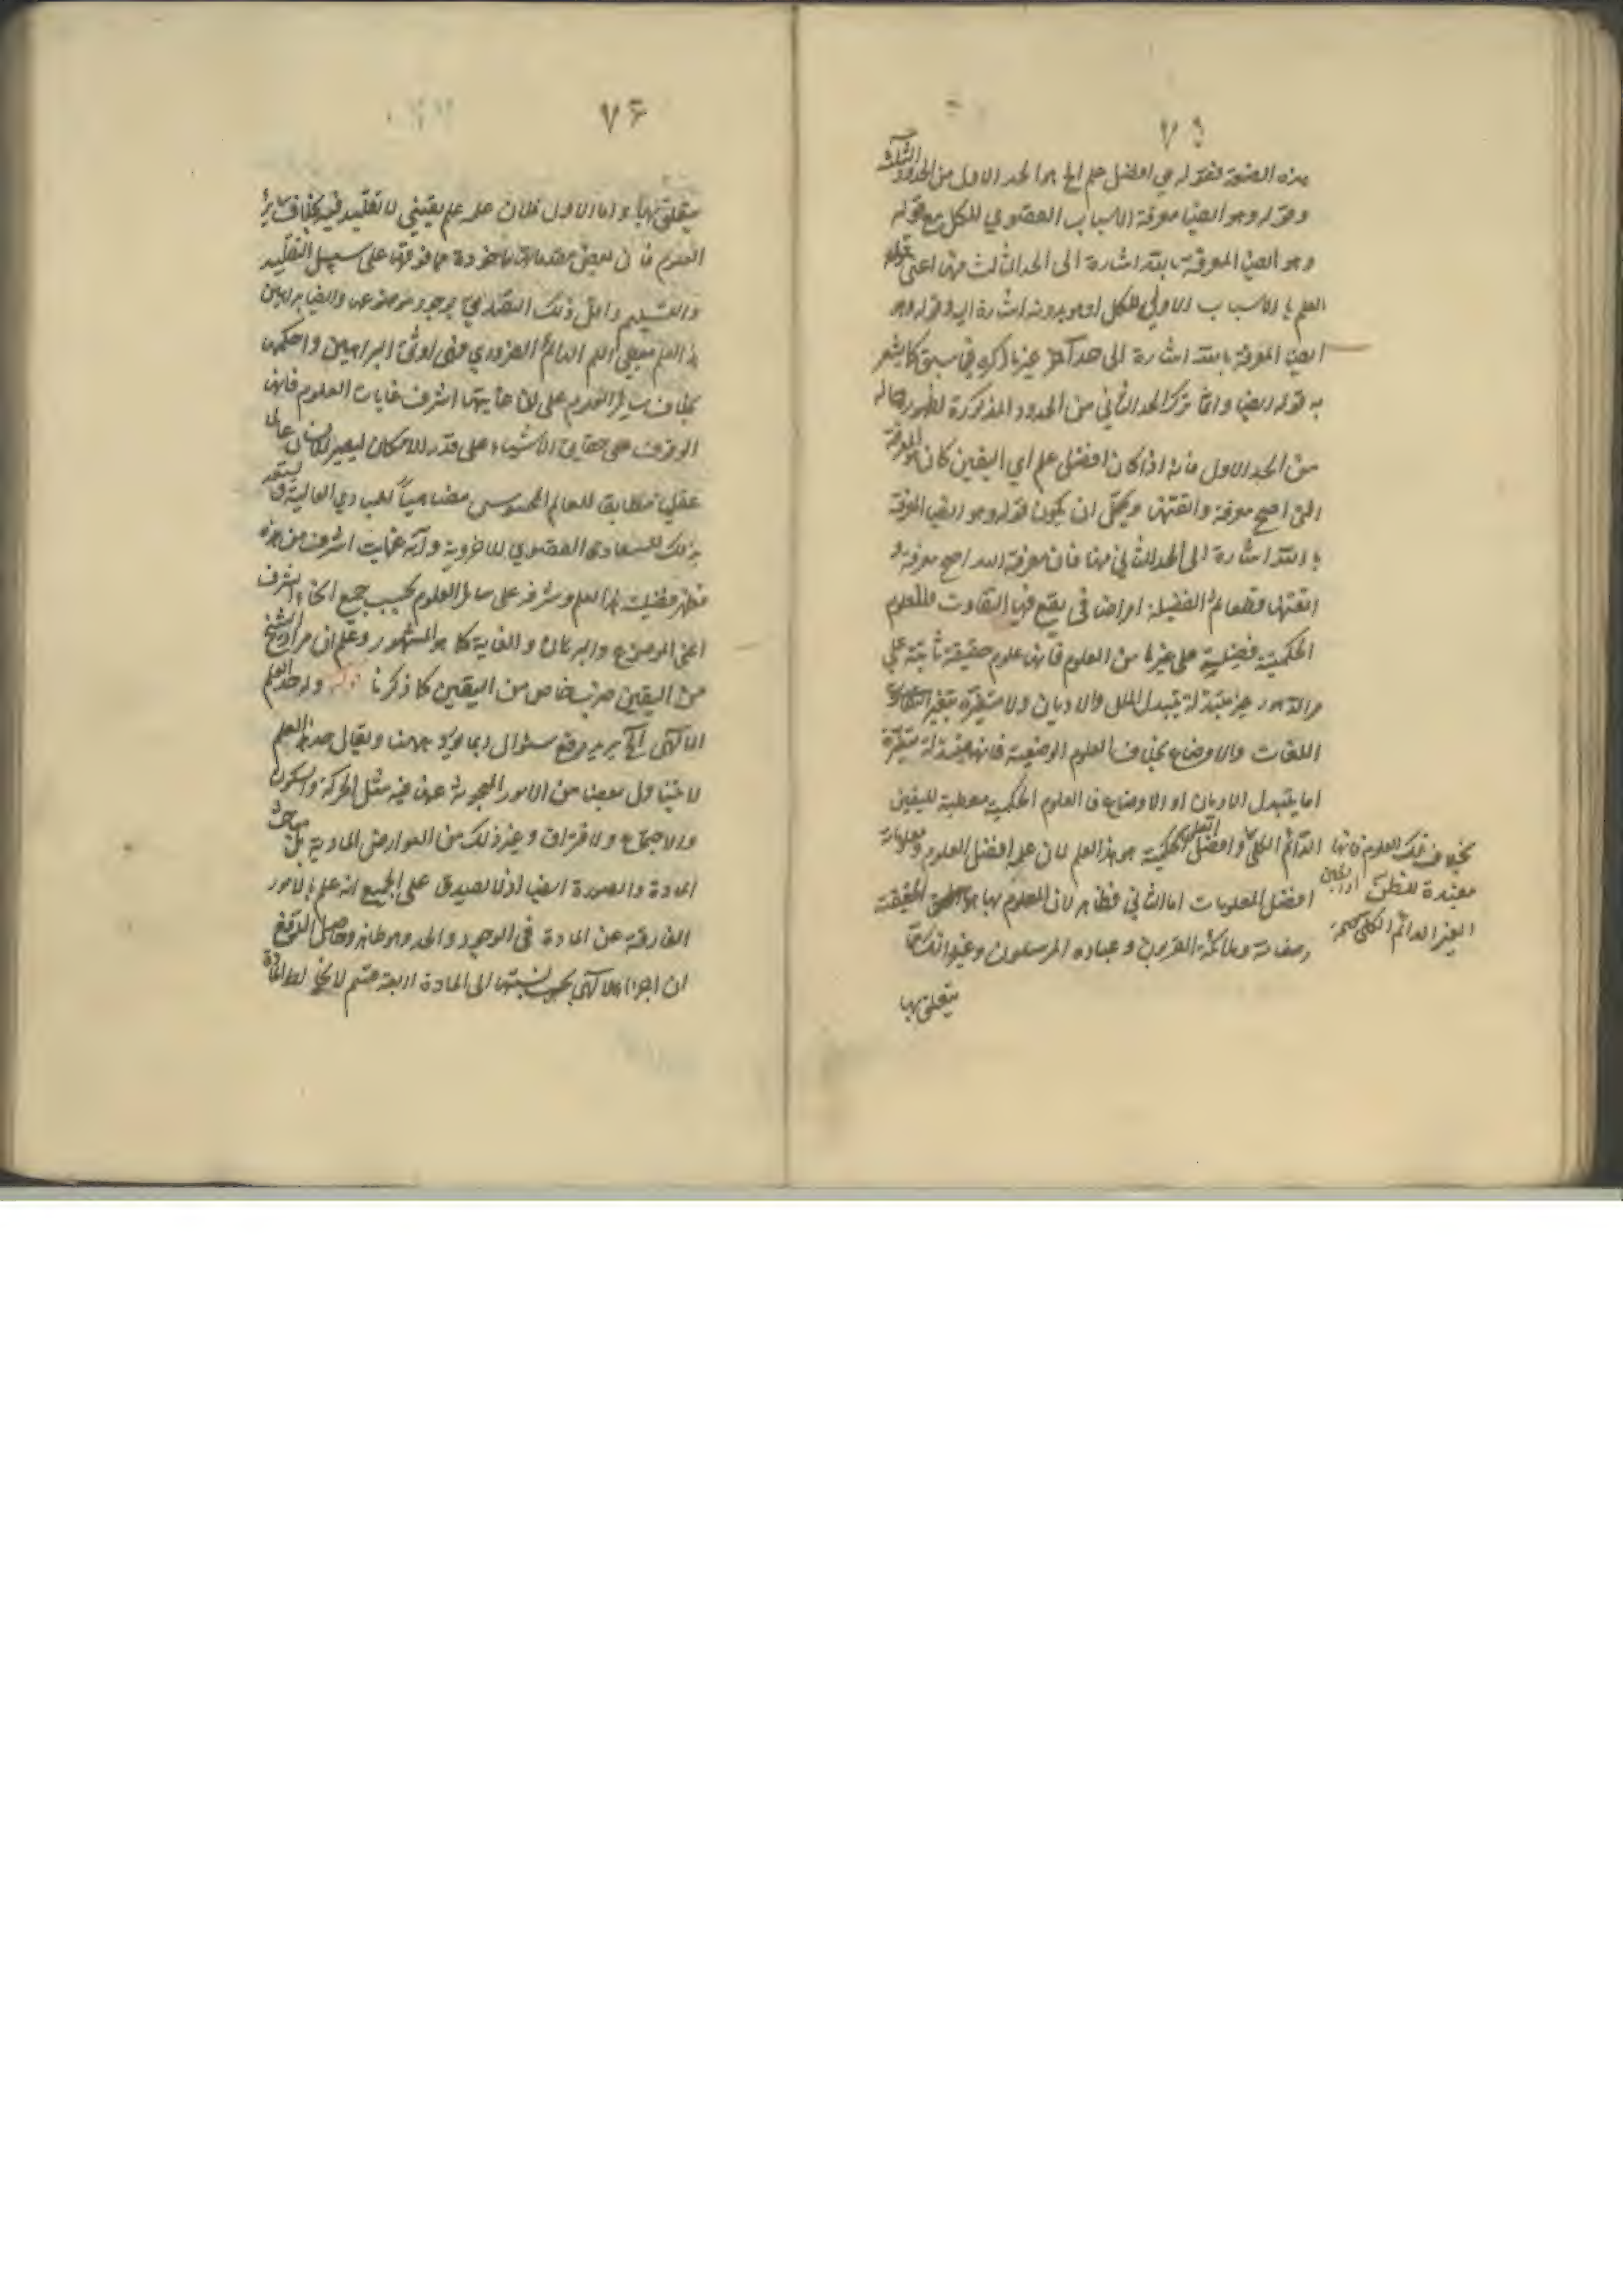 ٧٥
هذه الصنعة فقوله هي افضل علم الخ هو الحد الاول من الحدود الثلثة
وقوله وهو ايضا معرفة الاسباب القصوي للكل مع قوله
وهو ايضا المعرفة بالله اشارة الى الحد الثالث منها اعنى قوله
العلم بالاسباب الاولي للكل او هو بدونه اشارة اليه وقوله وهو
ايضا المعرفة بالله اشارة الى حد آخر غير ما ذكره في سبق كما يشعر
به قوله ايضا وانما ترك الحد الثاني من الحدود المذكورة لظهور حاله
من الحد الاول فانه اذا كان افضل علم اي اليقين كان المعرفة
التى اصح معرفة واتقنها ويحتمل ان يكون قوله وهو ايضا المعرفة
بالله اشارة الى الحد الثاني منها فان معرفة الله اصح معرفة و
اتقنها قطعا ثم الفضيلة امر اضافى يقع فيها التفاوت فللعلوم
الحكمية فضيلة على غيرها من العلوم فانها علوم حقيقة ثابتة على
مر الدهور غير متبدلة بتبدل الملل والاديان ولا متغيرة بتغير
اللغات والاوضاع بخلاف العلوم الوضعية فانها متبدلة متغيرة
اما بتبدل الاديان او الاوضاع فالعلوم الحكمية معطية لليقين
الدائم الكلي وافضل العلوم الحكمية هو هذا العلم لان علمه افضل العلوم ومعلوماته
افضل المعلومات اما الثاني فظاهر لان المعلوم بها هو الحق الحقيقة
وصفاته وملائكة المقربون وعباده المرسلون وغير ذلك مما
بخلاف تلك العلوم فانها
مفيدة للظن او اليقين
الغير الدائم الكلي
يتعلق بها
٧۶
يتعلق بها واما الاول فلان علمه علم يقيني لا تقليد فيه بخلاف سائر
العلوم فان لبعض مقدماتها ماخوذة مما فوقها على سبيل التقليد
والتسليم واقل ذلك التصديق بوجود موضوعه وايضا براهين
هذا العلم معطي اللم الدائم الضروري فهى اوثق البراهين واحكمها
بخلاف سائر العلوم على ان غايتها اشرف غايات العلوم فانها
الوقوف على حقايق الاشياء على قدر الامكان ليصير الانسان عالما
عقليا مطابقا للعالم المحسوس مضاهيا لمبادي العالية فيستعد
بذلك للسعادة القصوي الاخروية وآية غايت اشرف من هذه
فظهر فضيلت هذا العلم وشرفه على سائر العلوم بحسب جميع انحاء الشرف
اعنى الموضوع والبرهان والغاية كما هو المشهور وعلم ان مراد الشيخ
من اليقين ضرب خاص من اليقين كما ذكرنا قوله وله حد العلم
الآلهى الخ يريد دفع سئوال ربما يورد ههنا ويقال حد هذا العلم
لا يتناول بعضا من الامور المبحوثة عنها فيه مثل الحركة والسكون
والاجتماع والافتراق وغير ذلك من العوارض المادية بل مباحث
المادة والصورة ايضا اذ لا يصدق على الجميع انه علم بالامور
المفارقة عن المادة فى الوجود والحد وهو ظاهر وحاصل الدفع
ان اجزاء الآلهى بحسب نسبتها الى المادة اربعة قسم لا يخالط المادة